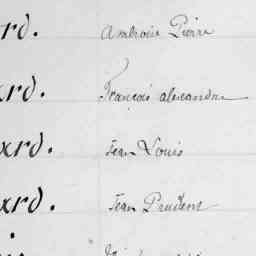 rd. Ambroise Pierre
ard. François alexandre
ard. Jean Louis
ard. Jean Prudent